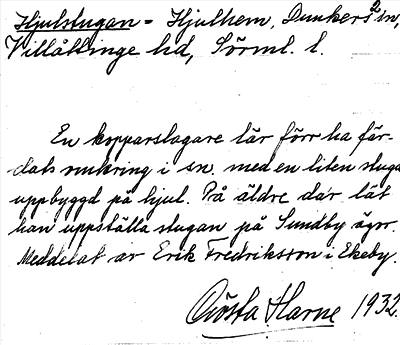 Hjulstugan = Hjulhem, Dunkers sn,
Villåttinge hd, Sörml. l.
En kopparslagare lär förr ha fär-
dats omkring i sn. med en liten stuga
uppbyggd på hjul. På äldre da'r lät
han uppställa stugan på Sundby ägor.
Meddelat av Erik Fredriksson i Ekeby.
Gösta Harne 1932.